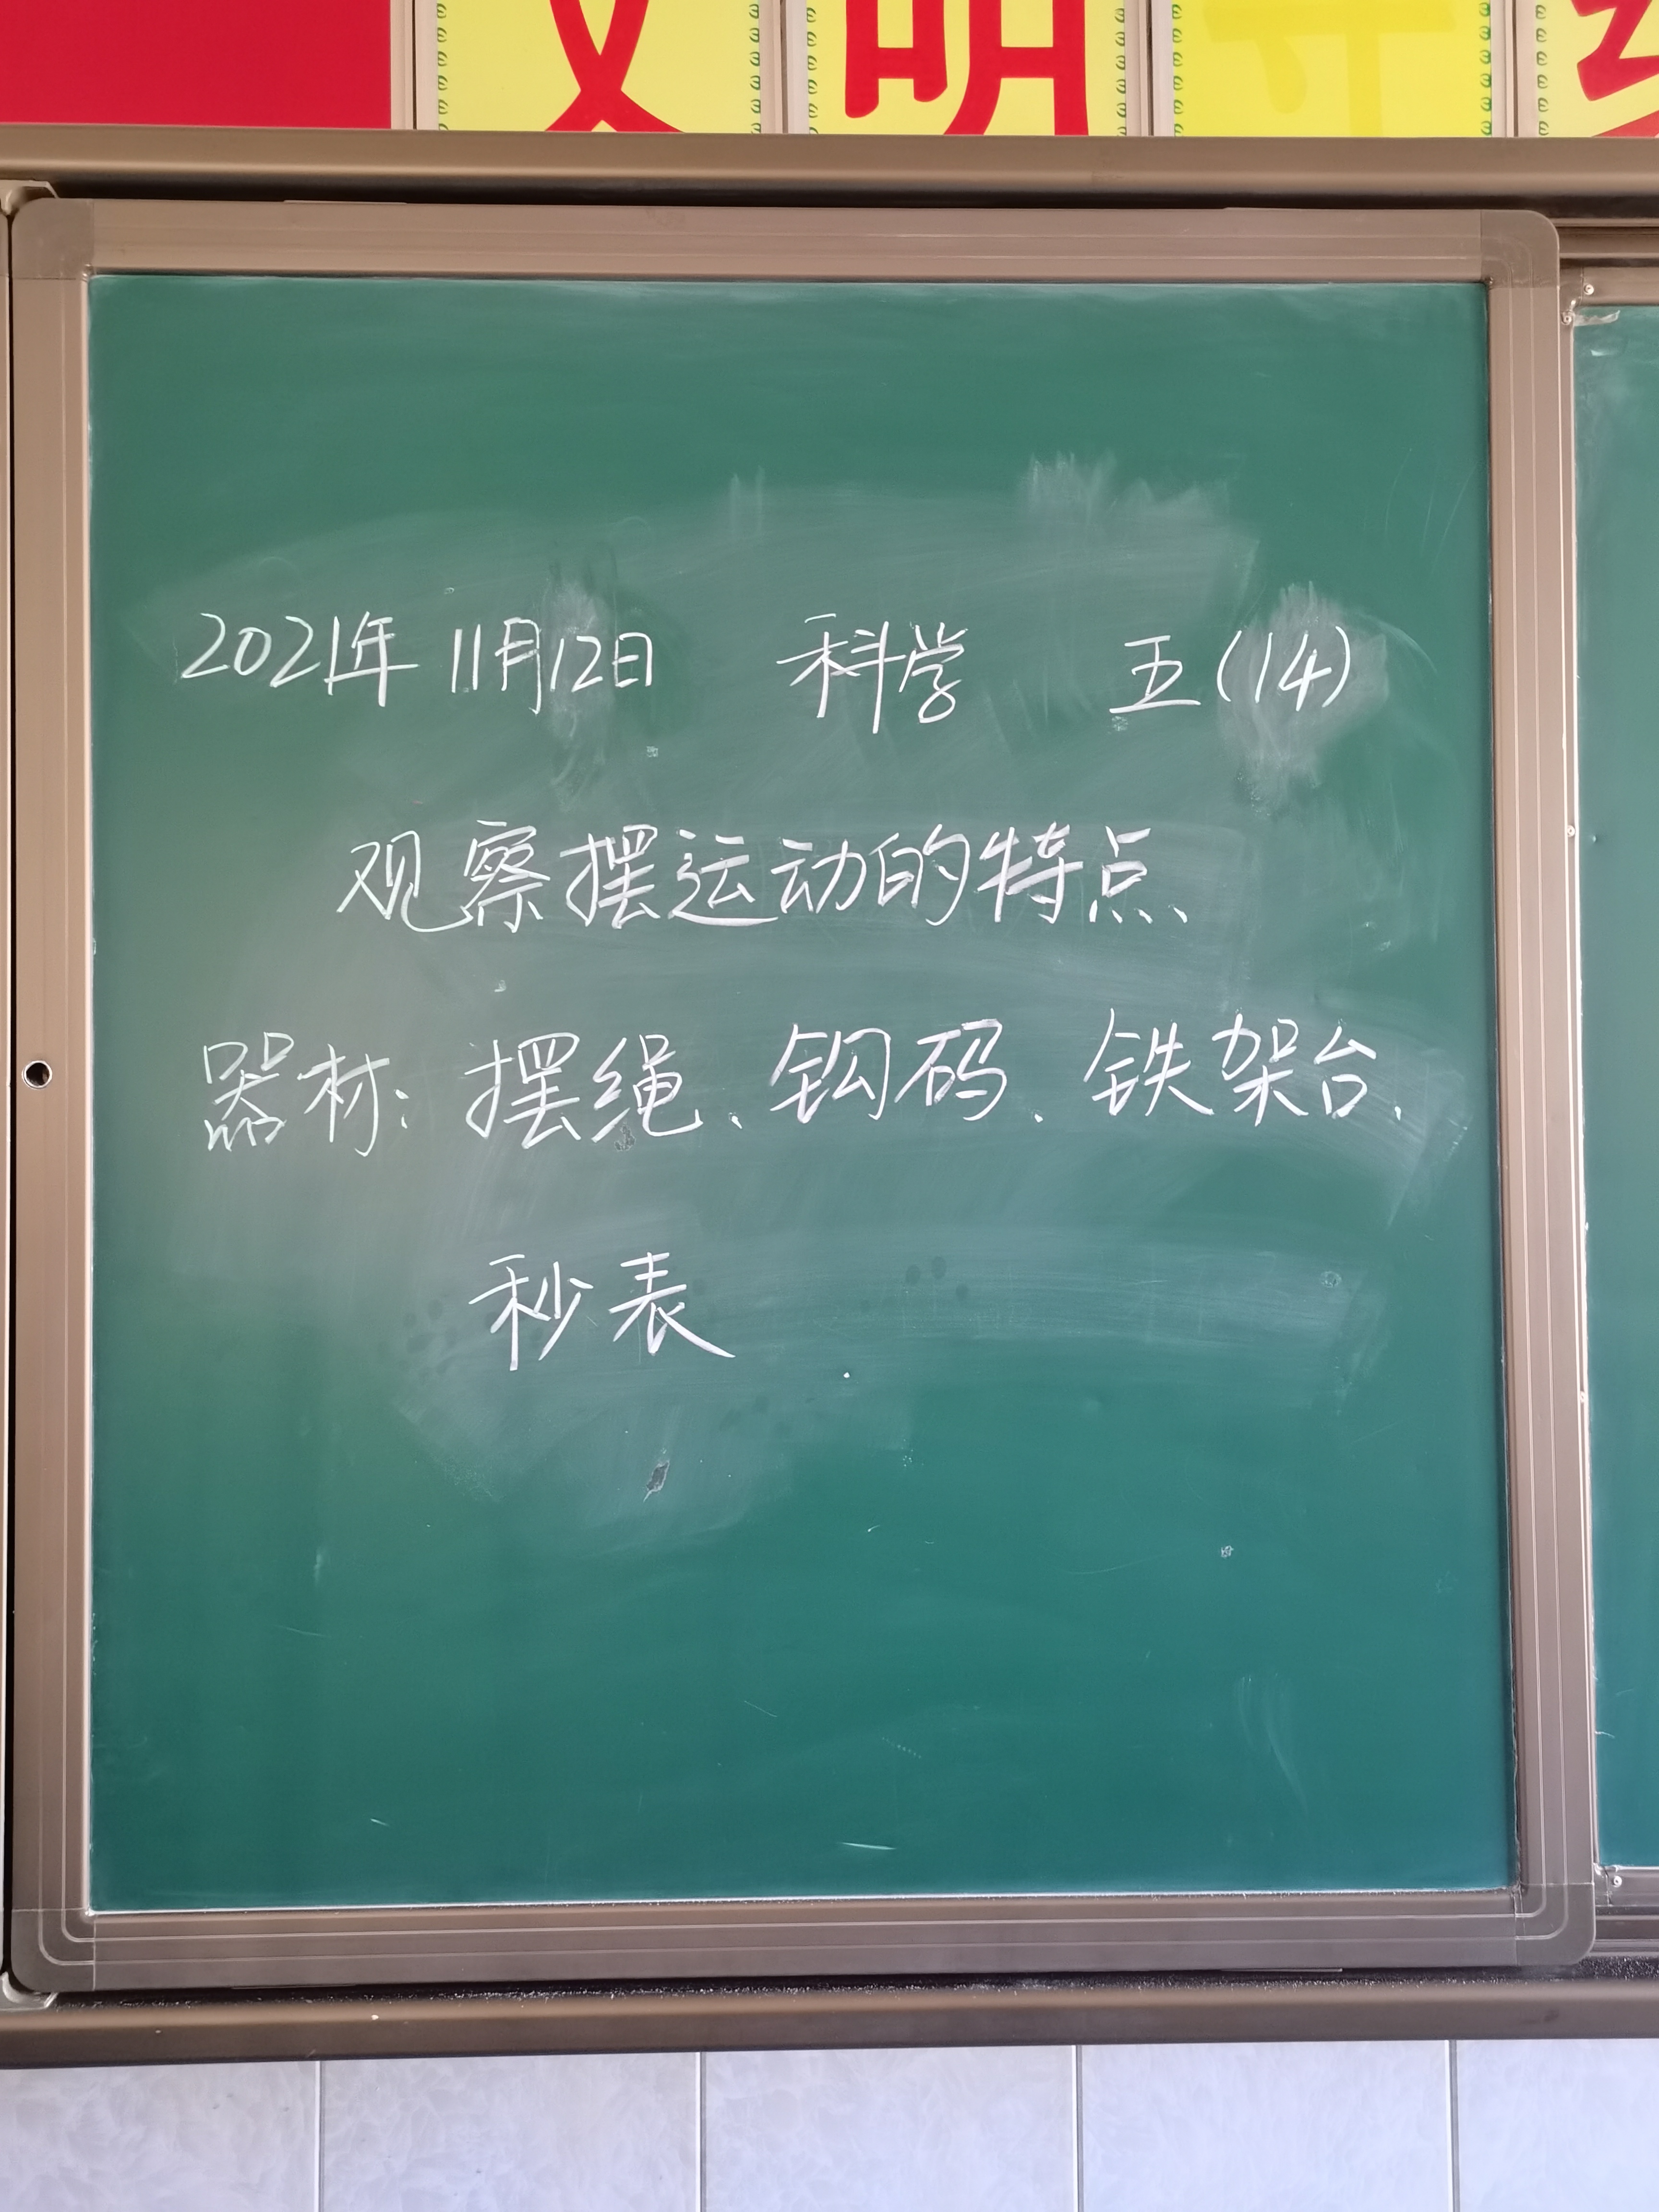 文明
2021年11月12日 科学 五(14)
观察摆运动的特点、
器材:摆绳、钩码、铁架台、
秒表